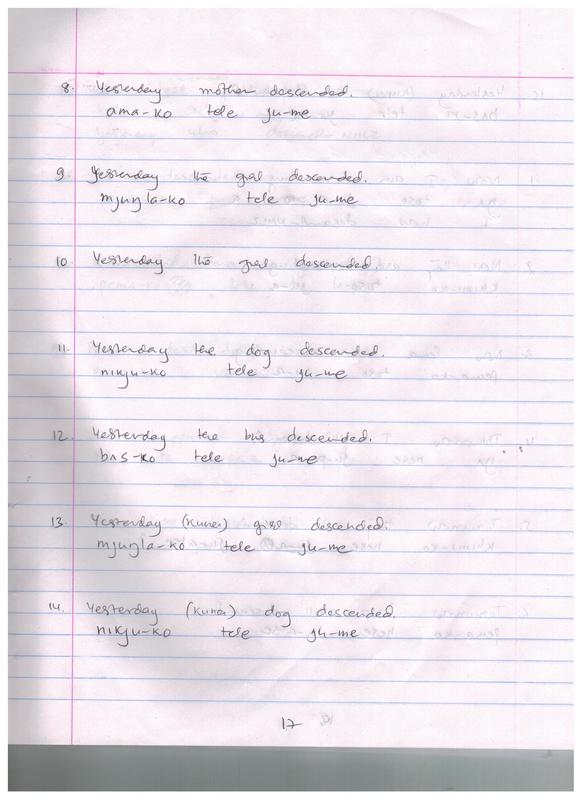 8. Yesterday mother descended.
ama-ko tele ju-me
9. Yesterday the girl descended.
mjuŋla-ko tele ju-me
10. Yesterday the girl descended.
11. Yesterday the dog descended.
nikju-ko tele ju-me
12. Yesterday the bus descended.
bʌs-ko tele ju-me
13. Yesterday (kunai) girl descended.
mjuŋla-ko tele ju-me
14. Yesterday (kunai) dog descended.
nikju-ko tele ju-me
17